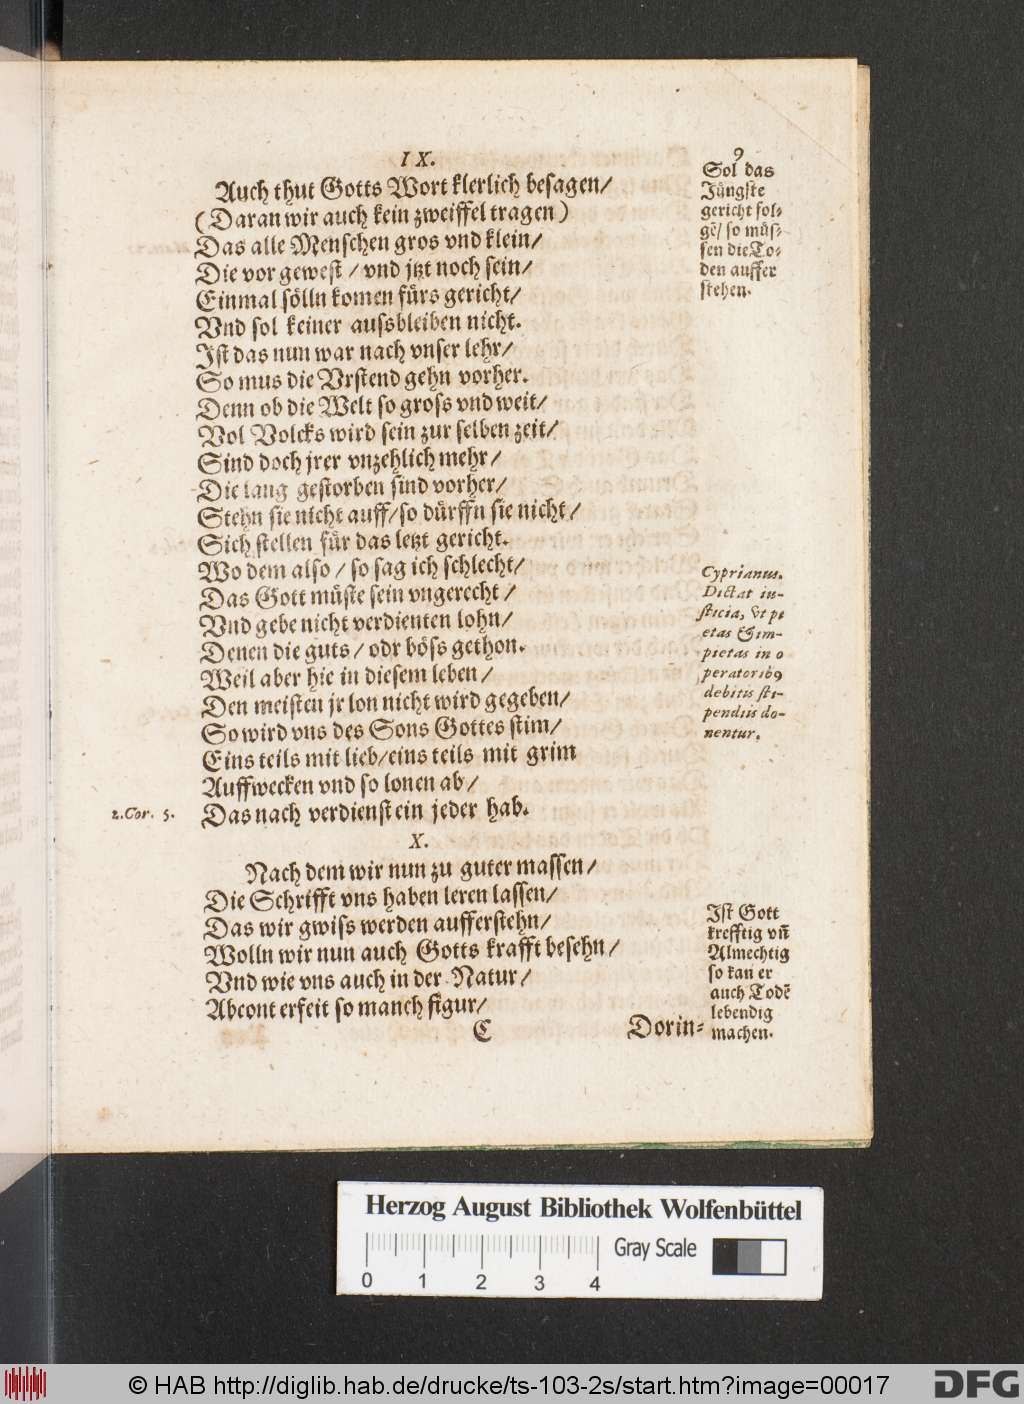 IX.
Auch thut Gotts Wort klerlich besagen/
(Daran wir auch kein zweiffel tragen)
Das alle Menschen gros vnd klein/
Die vor gewest / vnd jtzt noch sein/
Einmal sölln komen fürs gericht/
Vnd sol keiner aussbleiben nicht.
Ist das nun war nach vnser lehr/
So mus die Vrstend gehn vorher.
Denn ob die Welt so gross vnd weit/
Vol Volcks wird sein zur selben zeit/
Sind doch jrer vnzehlich mehr/
Die lang gestorben sind vorher/
Stehn sie nicht auff/so dürffn sie nicht/
Sich stellen für das letzt gericht.
Wo dem also / so sag ich schlecht/
Das Gott müste sein vngerecht /
Vnd gebe nicht verdienten lohn/
Denen die guts / odr böss gethon.
Weil aber hie in diesem leben /
Den meisten jr lon nicht wird gegeben/
So wird vns des Sons Gottes stim/
Eins teils mit lieb/eins teils mit grim
Auffwecken vnd so lonen ab/
Das nach verdienst ein jeder hab.
X.
Nach dem wir nun zu guter massen/
Die Schrifft vns haben leren lassen/
Das wir gwiss werden aufferstehn/
Wolln wir nun auch Gotts krafft besehn/
Vnd wie vns auch in der Natur/
Abconterfeit so manch figur/
C
Dorin=
9
Sol das
Jüngste
gericht fol=
gẽ/ so müs=
sen die To=
den auffer
stehen.
Cyprianus.
Dictat in-
sticia, Vt pi
etas & im-
pietas in o
peratorib9
debitis sti-
pendiis do-
nentur.
2. Cor. 5.
Ist Gott
krefftig vñ
Almechtig
so kan er
auch Todẽ
lebendig
machen.
Herzog August Bibliothek Wolfenbüttel
0 1 2 3 4
Gray Scale
© HAB http://diglib.hab.de/drucke/ts-103-2s/start.htm?image=00017
DFG